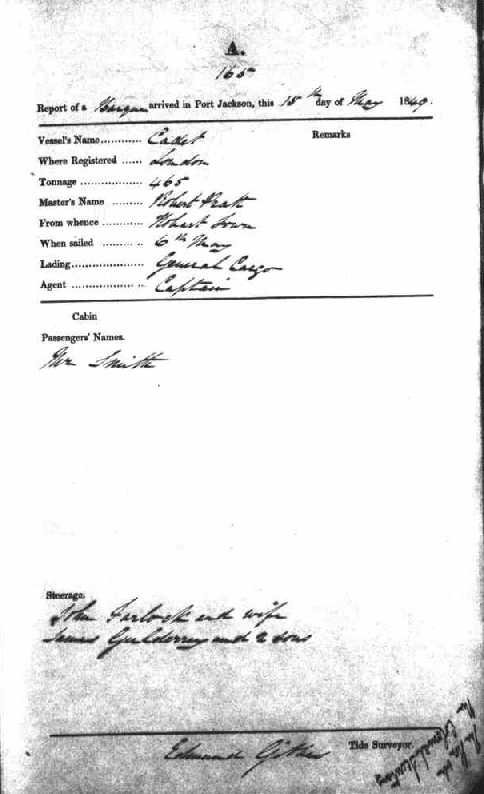 A.
165
Report of a Barque arrived in Port Jackson, this 15th day of May 1849.
Vessel's Name............ Cadet
Remarks
Where Registered ...... London
Tonnage .................. 465
Master's Name ......... Robert Pratt
From whence ............ Hobart Town
When sailed ............ 6th May
Lading..................... General Cargo
Agent ..................... Captain
Cabin
Passengers' Names.
Mr Smith
Steerage.
John and wife
James and 2 sons
Edmund
Tide Surveyor.